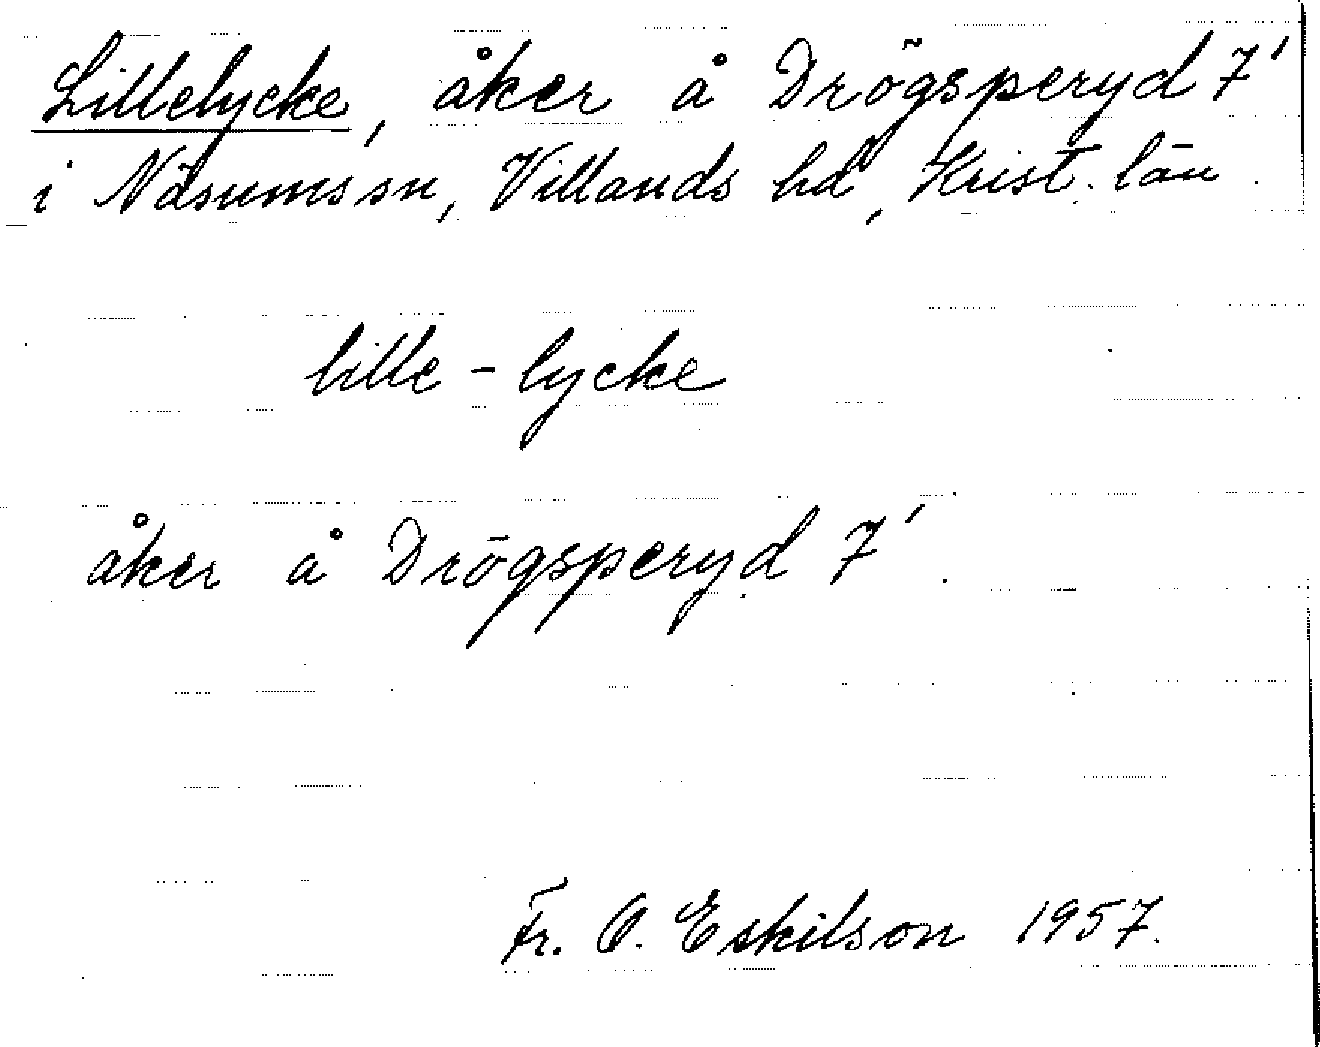 Lillelycke, åker å Drögsperyd 7¹
i Näsums sn, Villands hd, Krist. län.
lille - lycke
åker å Drögsperyd 7¹.
Fr. O. Eskilson 1957.